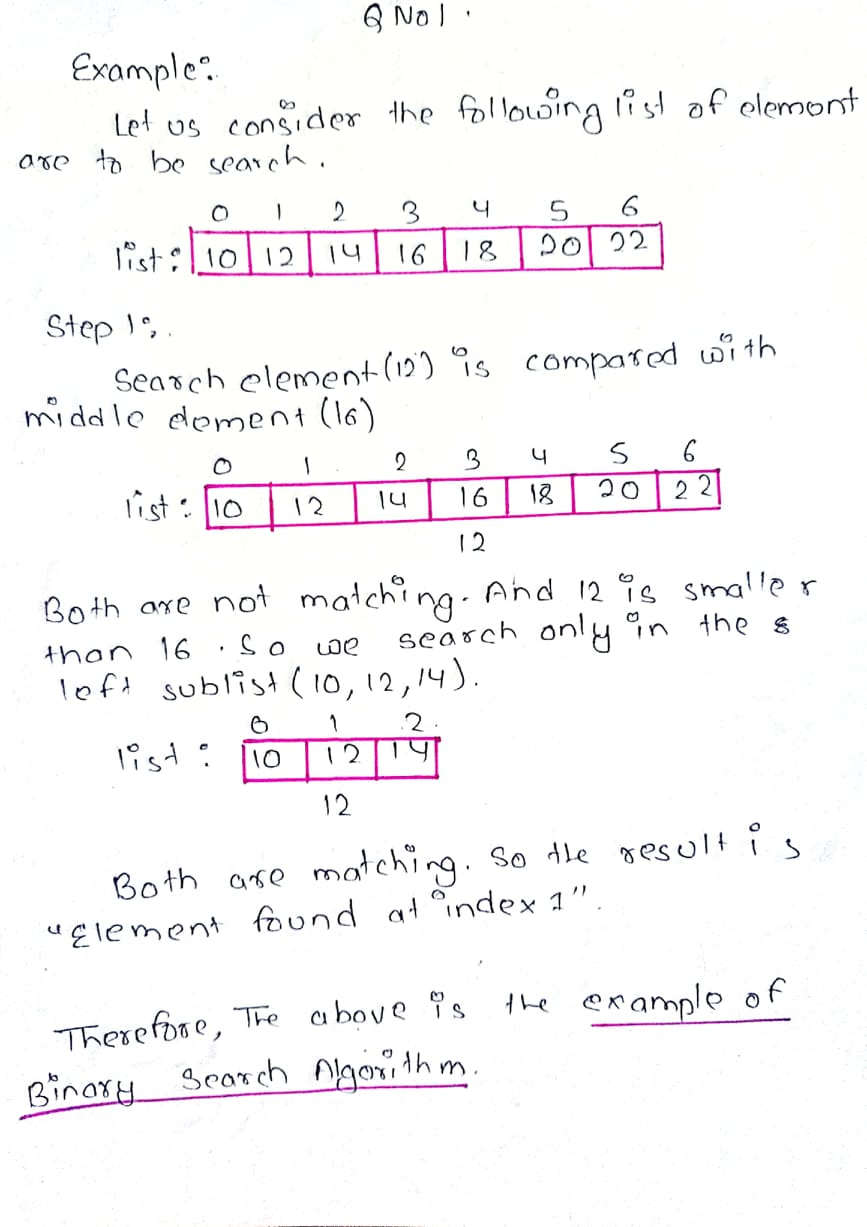 Q No 1.
Example:
Let us consider the following list of element
are to be search.
0 1 2 3 4 5 6
list: 10 12 14 16 18 20 22
Step 1:
Search element (12) is compared with
middle element (16)
0 1 2 3 4 5 6
list: 10 12 14 16 18 20 22
12
Both are not matching. And 12 is smaller
than 16. So we search only in the
left sublist (10, 12, 14).
0 1 2
list: 10 12 14
12
Both are matching. So the result is
"Element found at index 1".
Therefore, The above is the example of
Binary Search Algorithm.